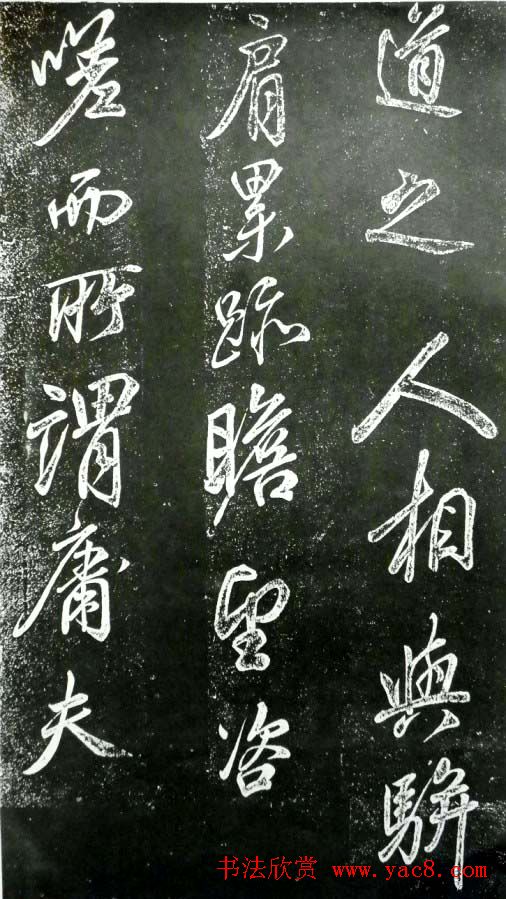 道之人相與騈
肩累跡瞻望咨
嗟而所謂庸夫
书法欣赏 www.yac8.com